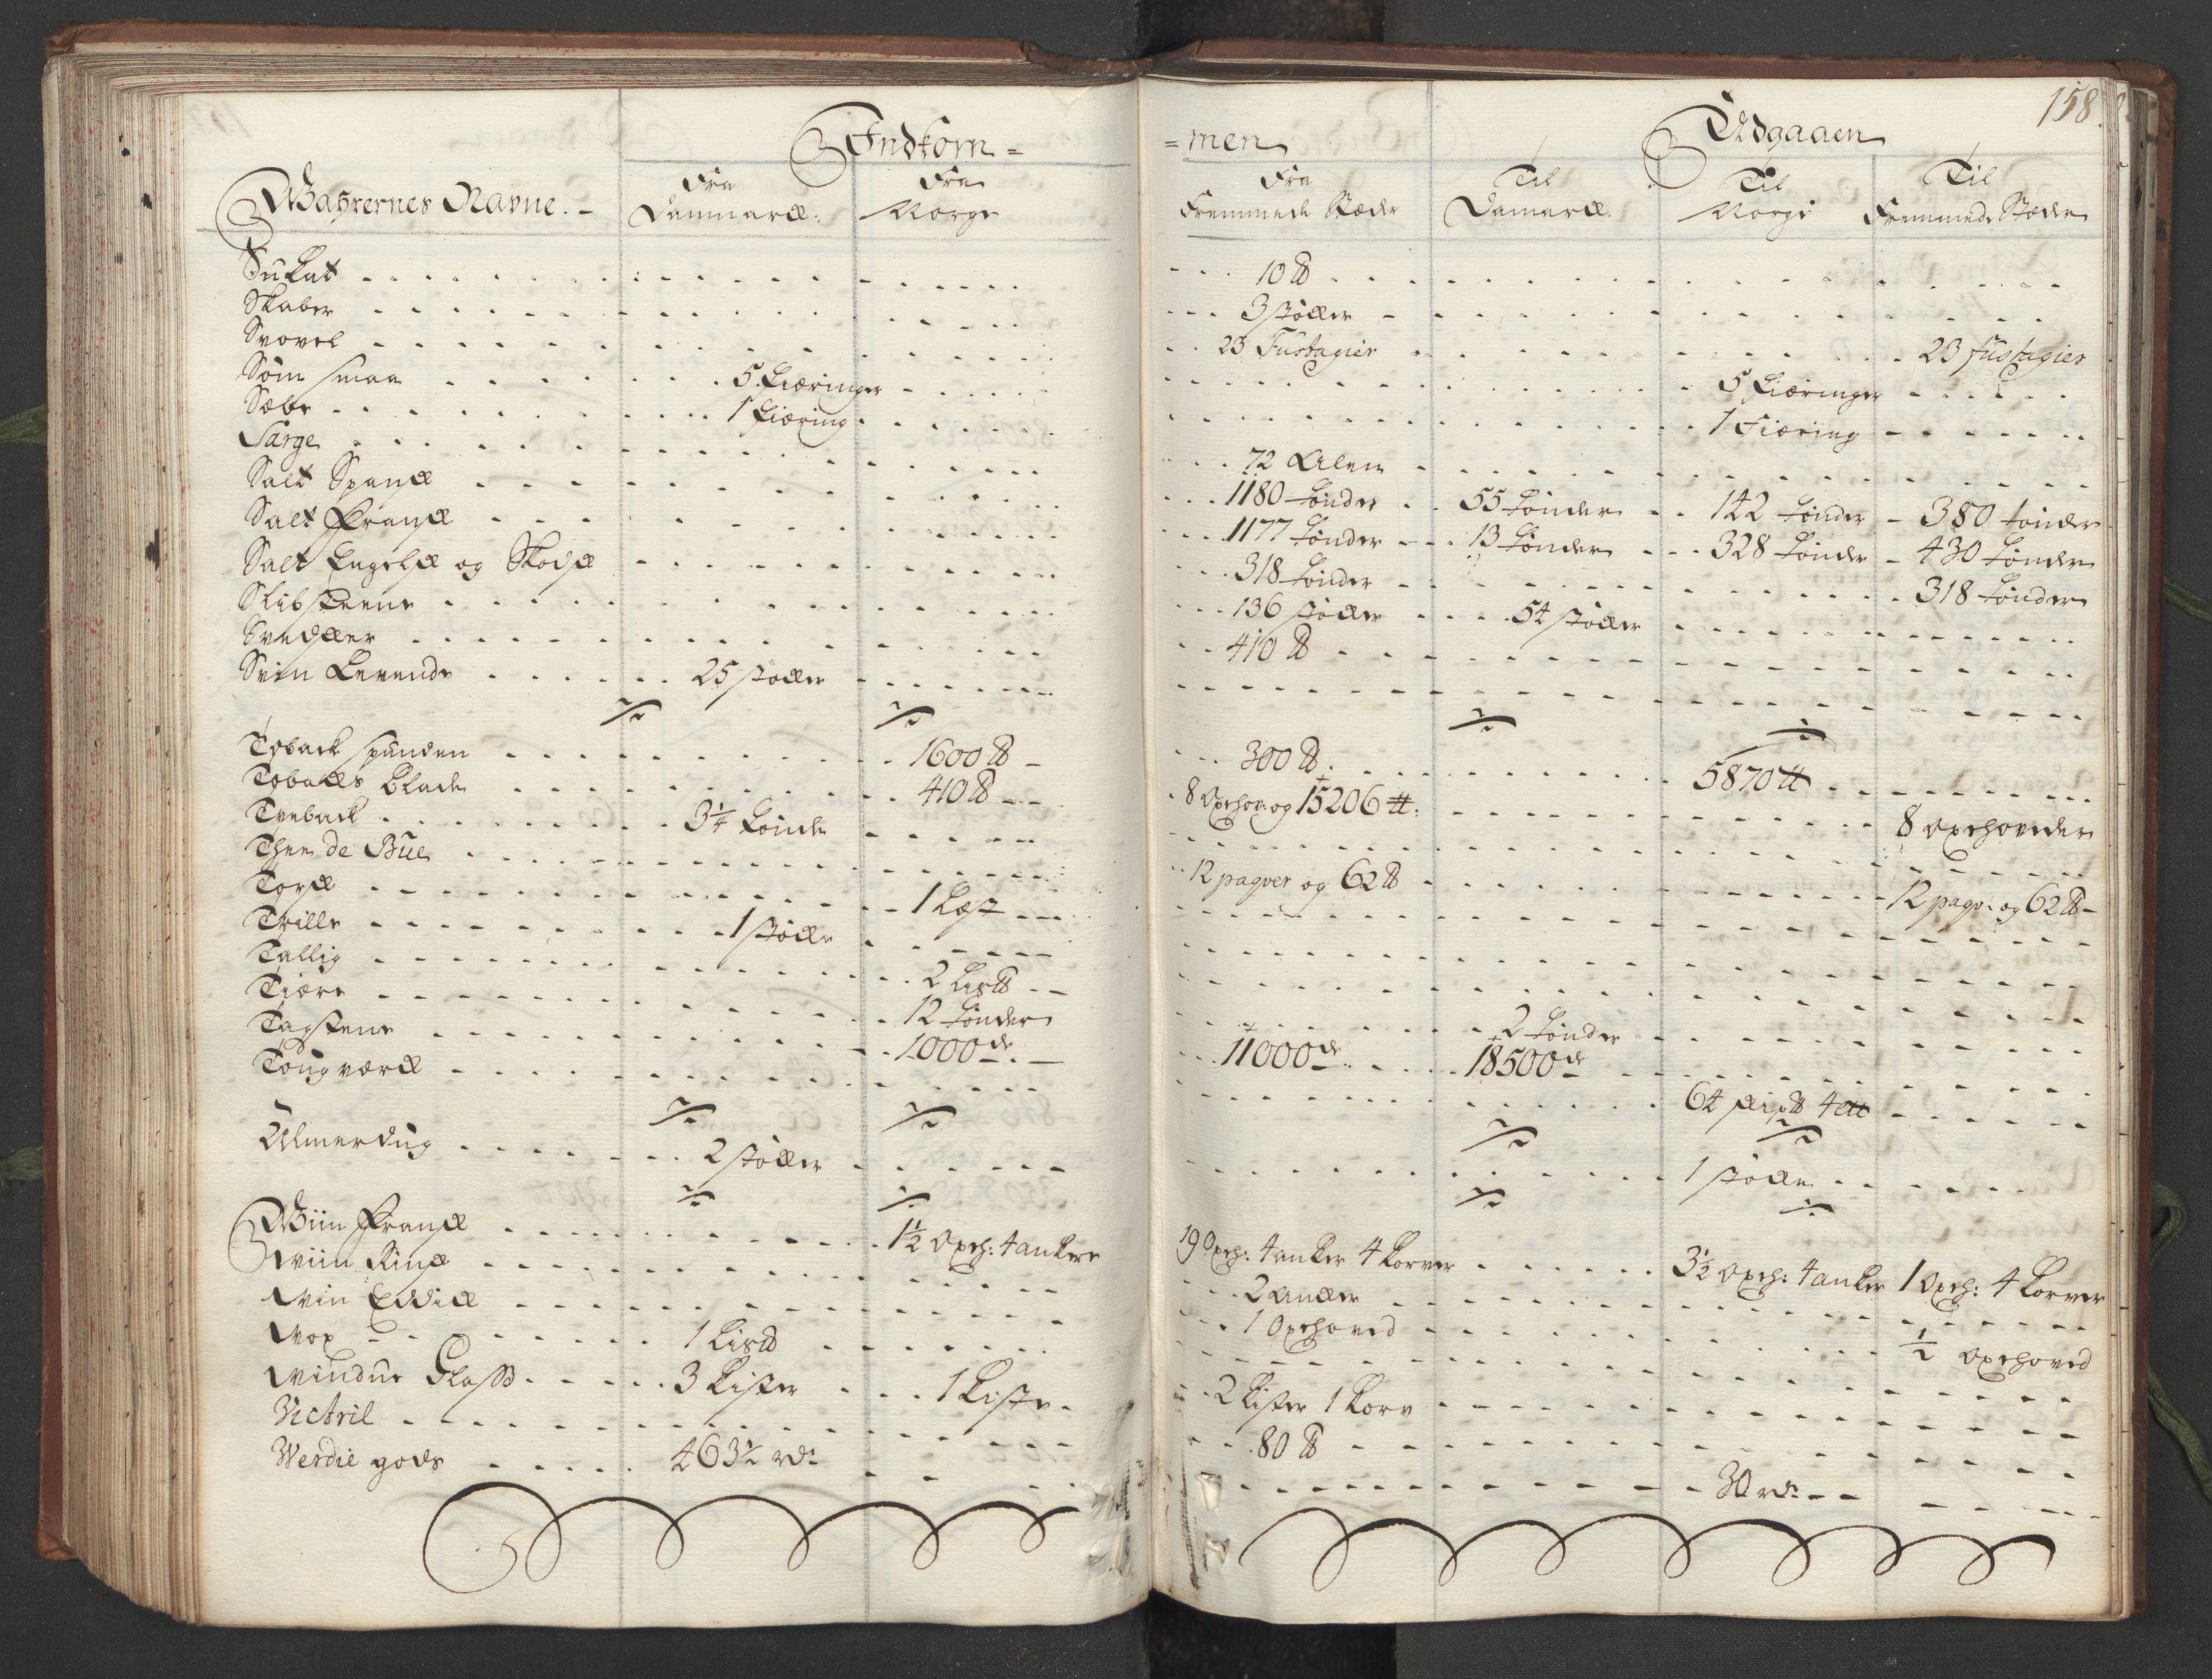 158.
Indkom= =men Udgaaen
Wahrernes Navne. Fra Danmark: Fra Norge Fra Fremmede Stæder Til Damark. Til Norge Til Fremmede Stæder
Sukat 10 ℔
Skaber 3 støkker
Svovel 23 Fustagier 23 fustagier
Søm smaa 5 Fiæringer 5 Fiæringer
Sæbe 1 Fiæring 1 Fiæring
Sarge 72 Alen
Salt Spansk 1180 tønder 55 tønder 142 tønder 380 tønder
Salt Fransk 1177 tønder 13 tønder 328 tønder 430 tønder
Salt Engelsk og Skodsk 318 tønder 318 tønder
Slibsteene 136 støkker 54 støkker
Svedsker 410 ℔
Svin Levende 25 støkker
Toback spunden 1600 ℔ 300 ℔ 5870 ℔
Tobaks Blade 410 ℔ 8 Oxehov: og 15206 ℔: 8 Oxehoveder
Tveback 3 1/4 tønde
Thee de Bue 12 pagver og 62 ℔ 12 pagv: og 62 ℔
Torsk 1 Læst
Trille 1 støkke
Tallig 2 Lis℔
Tiære 12 tønder 2 tønder
Tagstene 1000de 11000de 18500de
Tougværk 64 skip℔ 4 ℔
Ulmerdug 2 støkker 1 støkke
Wiin Fransk 1 1/2 Oxeh: 4 ankere 19 Oxeh: 4 anker 4 korver 3 1/2 Oxeh: 4 anker 1 Oxeh: 4 korver
Wiin Rinsk 2 anker
Win Eddik 1 Oxehoved 1/2 Oxehoved
Wox 1 Lis℔
Windue Glass 3 kister 1 kiste 2 kister 1 korv
Victril 80 ℔
Werdie gods 463 1/2 rd: 30 rd: